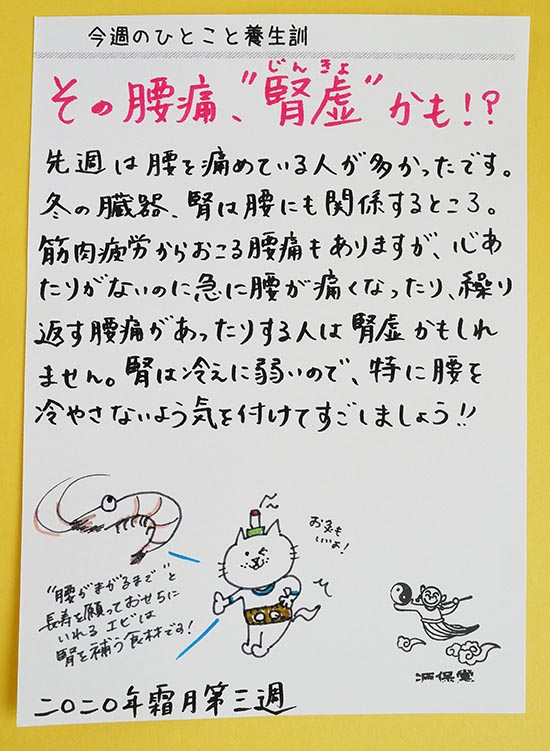 今週のひとこと養生訓
じんきょ
その腰痛、“腎虚”かも!?
先週は腰を痛めている人が多かったです。
冬の臓器、腎は腰にも関係するところ。
筋肉疲労からおこる腰痛もありますが、心あ
たりがないのに急に腰が痛くなったり、繰り
返す腰痛があったりする人は腎虚かもしれ
ません。腎は冷えに弱いので、特に腰を
冷やさないよう気を付けてすごしましょう!!
お灸も
いいよ!
“腰がまがるまで”と
長寿を願っておせちに
いれるエビは
腎を補う食材です!
二〇二〇年霜月第三週